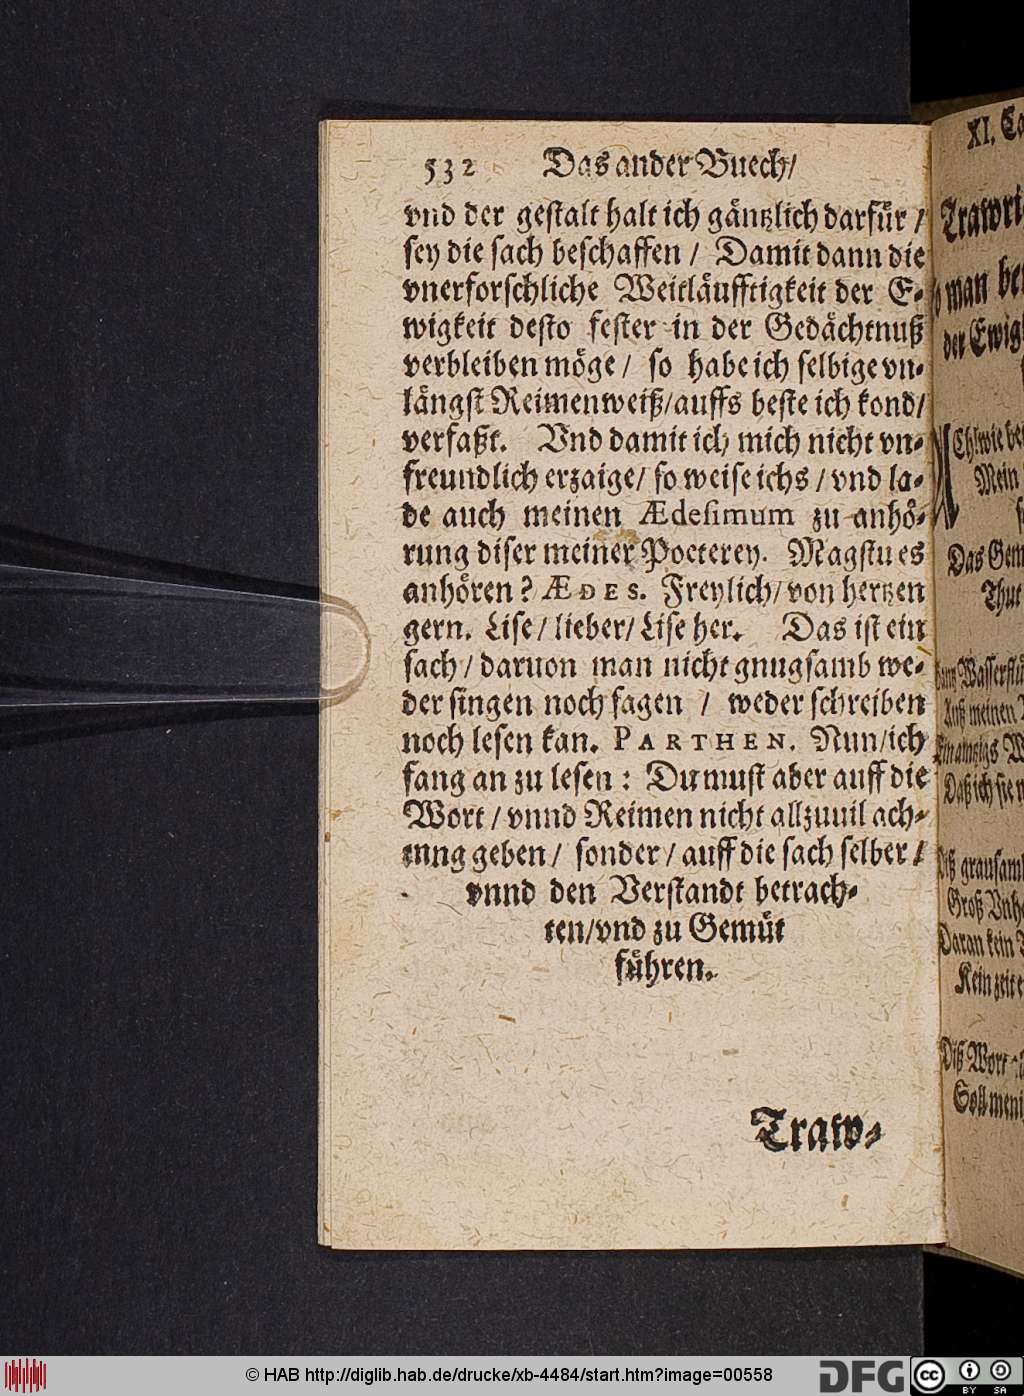 532 Das ander Buech/
vnd der gestalt halt ich gäntzlich darfür /
sey die sach beschaffen / Damit dann die
vnerforschliche Weitläufftigkeit der E-
wigkeit desto fester in der Gedächtnuß
verbleiben möge / so habe ich selbige vn-
längst Reimenweiß/auffs beste ich kond/
verfaßt. Vnd damit ich mich nicht vn-
freundlich erzaige/ so weise ichs / vnd la-
de auch meinen Ædesimum zu anhö-
rung diser meiner Poeterey. Magstu es
anhören? ÆDES. Freylich/ von hertzen
gern. Lise/ lieber/ Lise her. Das ist ein
sach/ daruon man nicht gnugsamb we-
der singen noch sagen / weder schreiben
noch lesen kan. PARTHEN. Nun/ich
fang an zu lesen: Du must aber auff die
Wort / vnnd Reimen nicht allzuuil ach-
tung geben/ sonder/ auff die sach selber/
vnnd den Verstandt betrach-
ten/vnd zu Gemüt
führen.
Traw-
XI.
Trawri
man
der Ewig
Ch! wie
Mein
Das
Thut
Wasserflü
Auß meinen
Daß ich sie
grausam
Groß Vnh
Daran kein
Kein zeit
Diß Wort
Soll
© HAB http://diglib.hab.de/drucke/xb-4484/start.htm?image=00558
DFG
cc BY SA